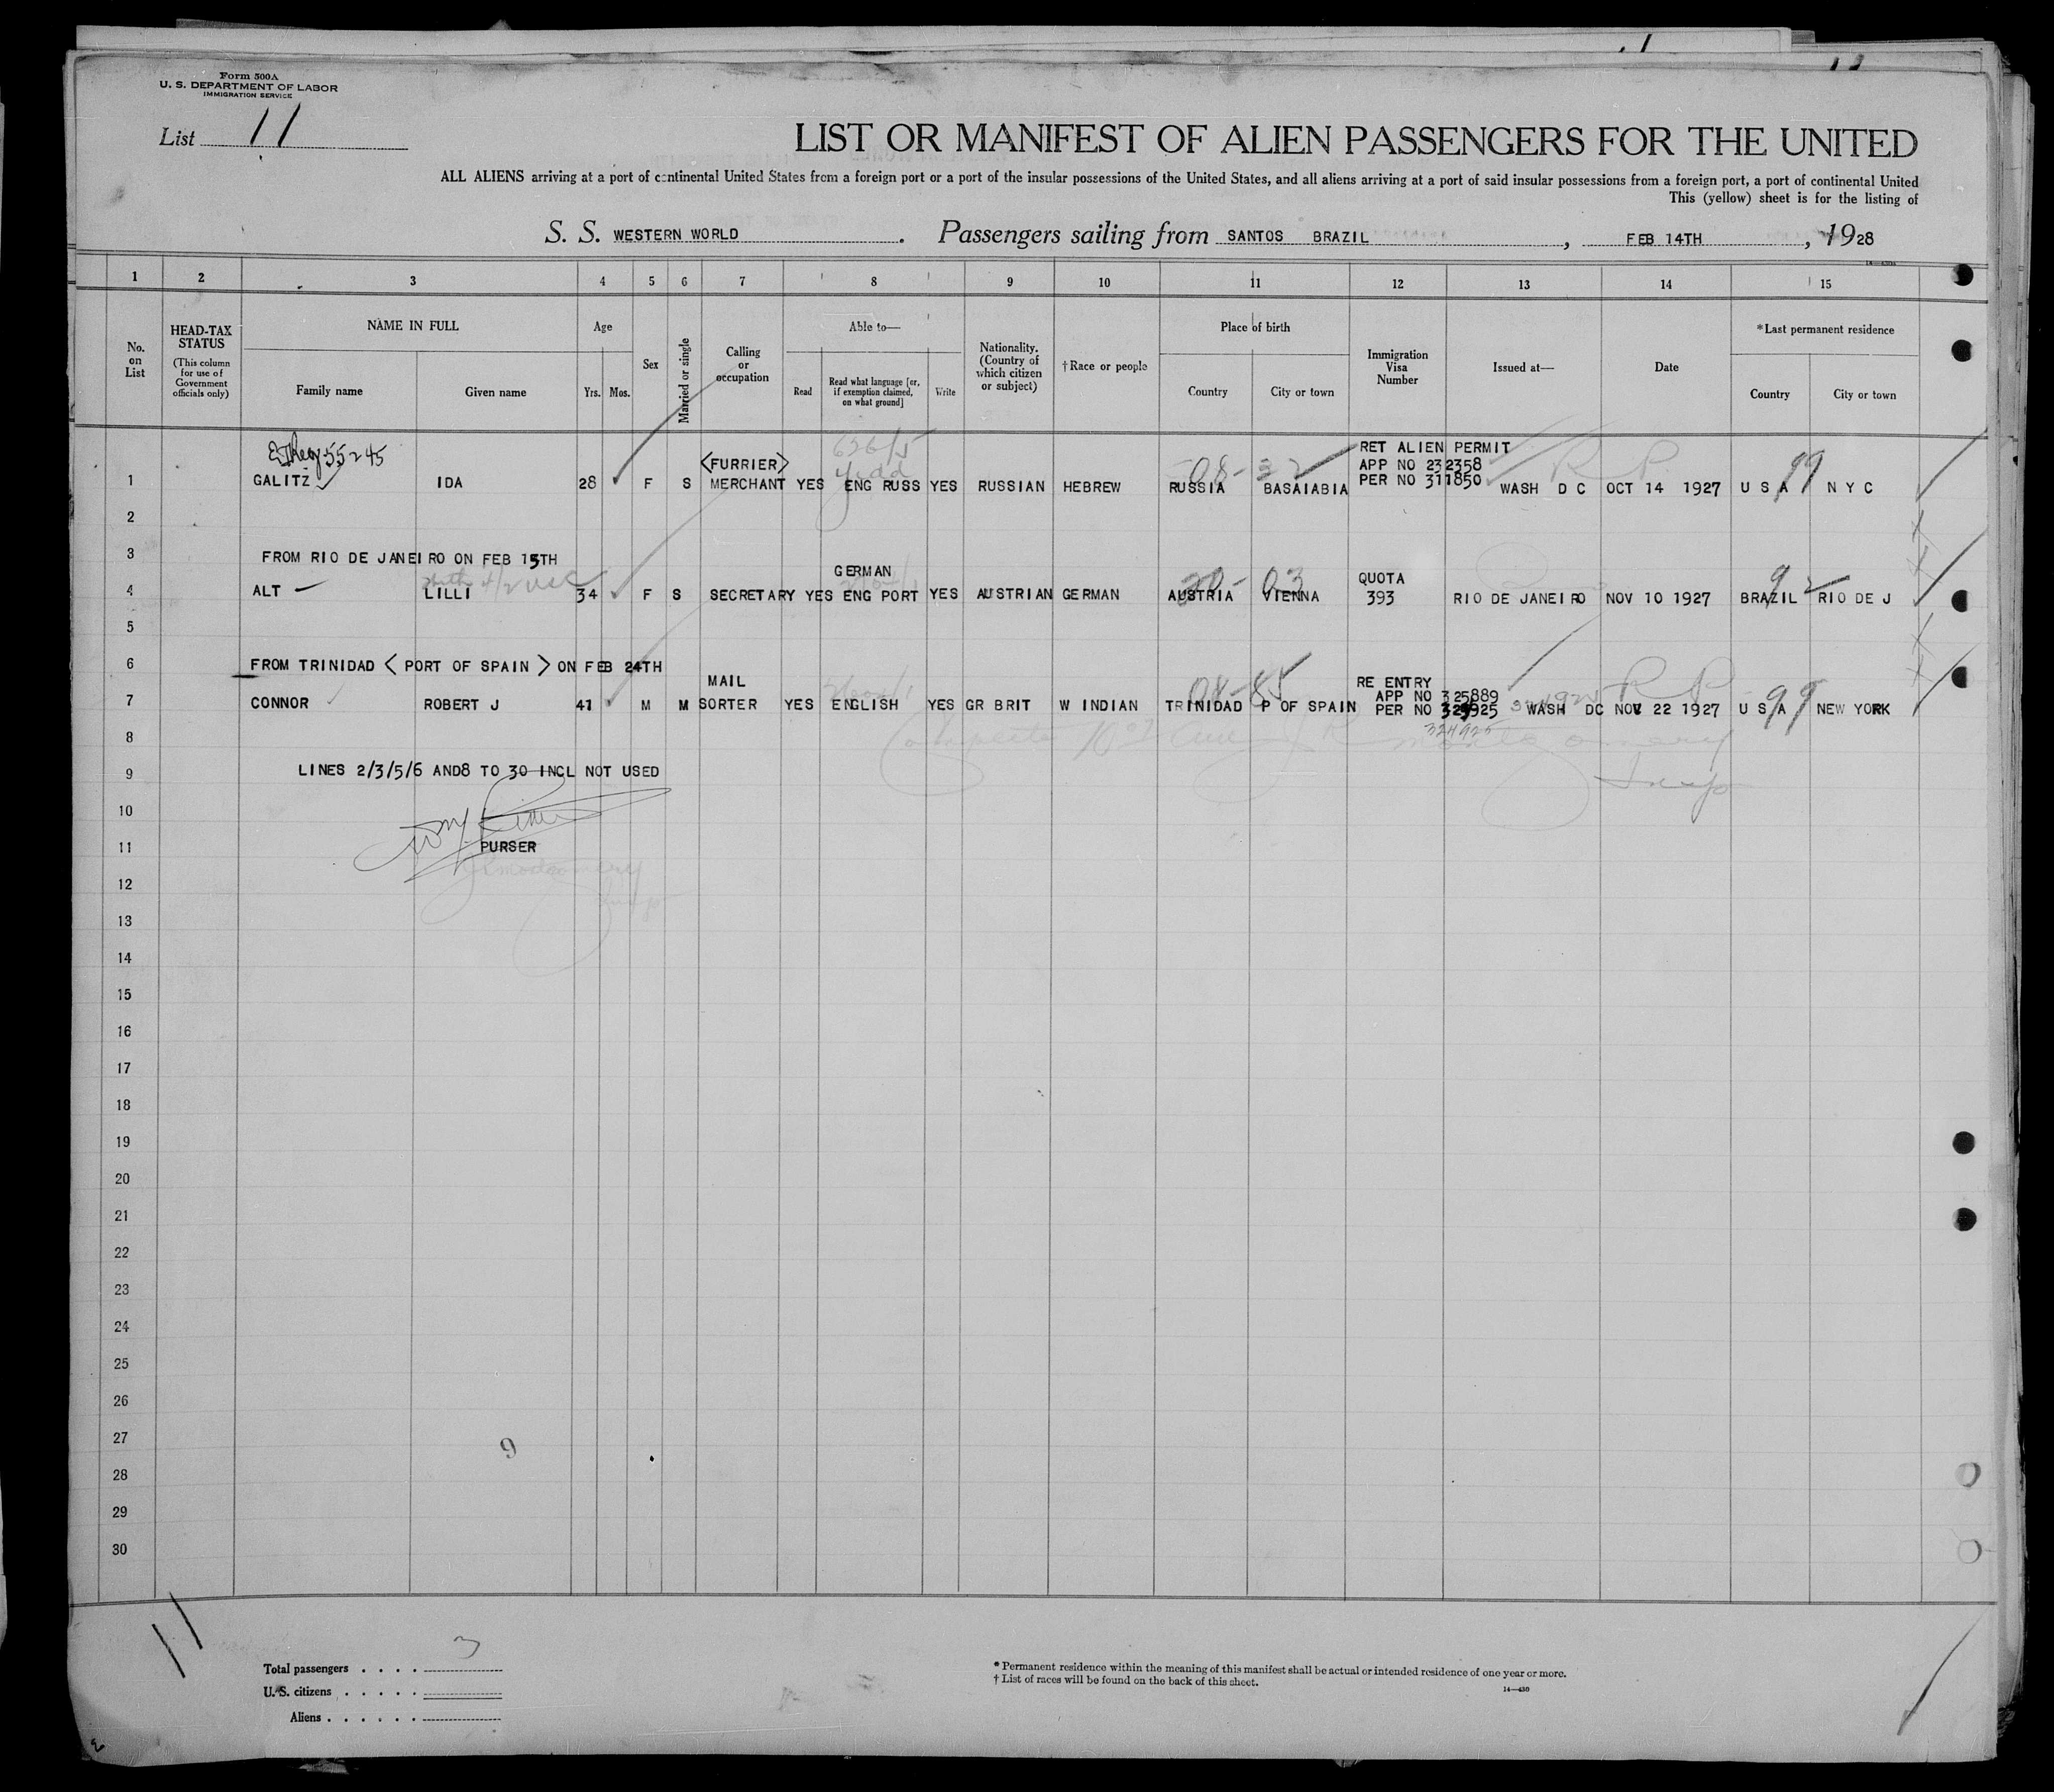 Form 500A
U. S. DEPARTMENT OF LABOR
IMMIGRATION SERVICE
List 11
LIST OR MANIFEST OF ALIEN PASSENGERS FOR THE UNITED
ALL ALIENS arriving at a port of continental United States from a foreign port or a port of the insular possessions of the United States, and all aliens arriving at a port of said insular possessions from a foreign port, a port of continental United
This (yellow) sheet is for the listing of
S. S. WESTERN WORLD. Passengers sailing from SANTOS BRAZIL, FEB 14TH, 1928
1 2 3 4 5 6 7 8 9 10 11 12 13 14 15
No. on List
HEAD-TAX STATUS
(This column for use of Government officials only)
NAME IN FULL
Family name
Given name
Age
Yrs. Mos.
Sex
Married or single
Calling or occupation
Able to—
Read
Read what language [or, if exemption claimed, on what ground]
Write
Nationality. (Country of which citizen or subject)
†Race or people
Place of birth
Country
City or town
Immigration Visa Number
Issued at—
Date
*Last permanent residence
Country
City or town
55245
626/5
Yidd
08-32
99
RET ALIEN PERMIT
<FURRIER> APP NO 232358
1 GALITZ IDA 28 F S MERCHANT YES ENG RUSS YES RUSSIAN HEBREW RUSSIA BASAIABIA PER NO 311850 WASH D C OCT 14 1927 U S A N Y C
2
3 FROM RIO DE JANEIRO ON FEB 15TH
GERMAN QUOTA
4 ALT LILLI 34 F S SECRETARY YES ENG PORT YES AUSTRIAN GERMAN AUSTRIA VIENNA 393 RIO DE JANEIRO NOV 10 1927 BRAZIL RIO DE J
92
5
6 FROM TRINIDAD < PORT OF SPAIN > ON FEB 24TH
MAIL 08-85 RE ENTRY
APP NO 325889
7 CONNOR ROBERT J 41 M M SORTER YES ENGLISH YES GR BRIT W INDIAN TRINIDAD P OF SPAIN PER NO WASH DC NOV 22 1927 U S A NEW YORK
99
324925
8
9 LINES 2/3/5/6 AND8 TO 30 INCL NOT USED
10
11 PURSER
12
13
14
15
16
17
18
19
20
21
22
23
24
25
26
27
9
28
29
30
11
Total passengers . . . . 3
U. S. citizens . . . . .
Aliens . . . . . .
* Permanent residence within the meaning of this manifest shall be actual or intended residence of one year or more.
† List of races will be found on the back of this sheet.
14—430